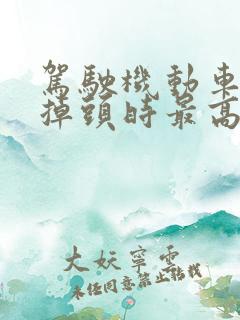 駕駛機動車
掉頭時最高
大妖寧雲
未經同意禁止轉載